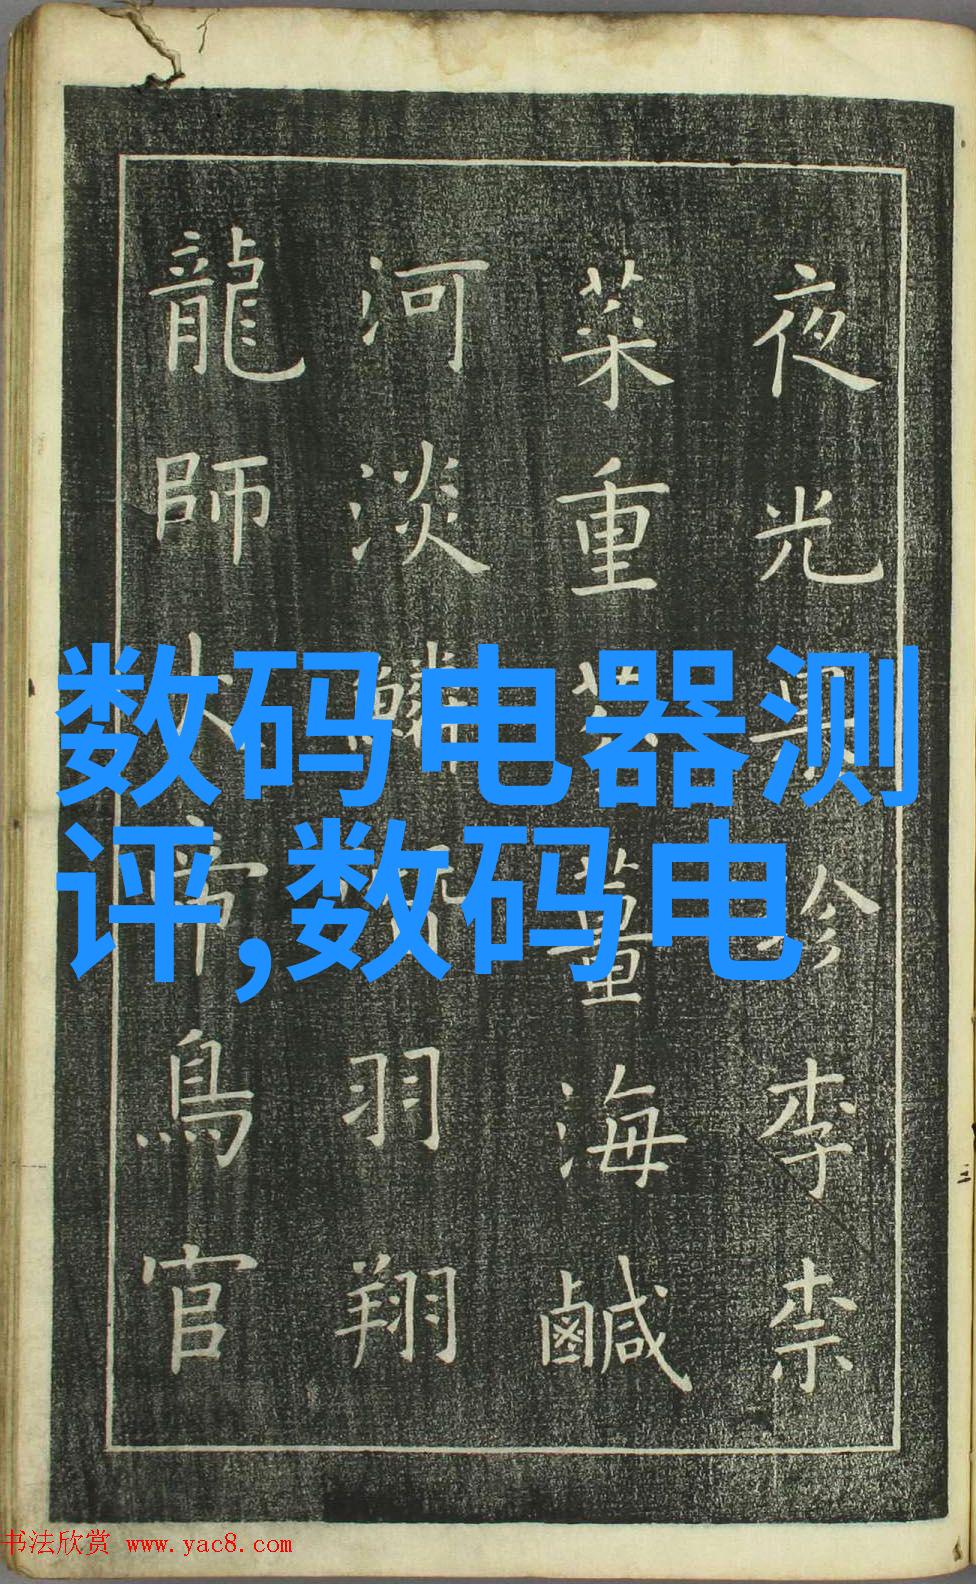 夜光果珍李柰
菜重芥薑海鹹
河淡鱗羽翔
龍師火帝鳥官
数码电器测
评,数码电
书法欣赏 www.yac8.com